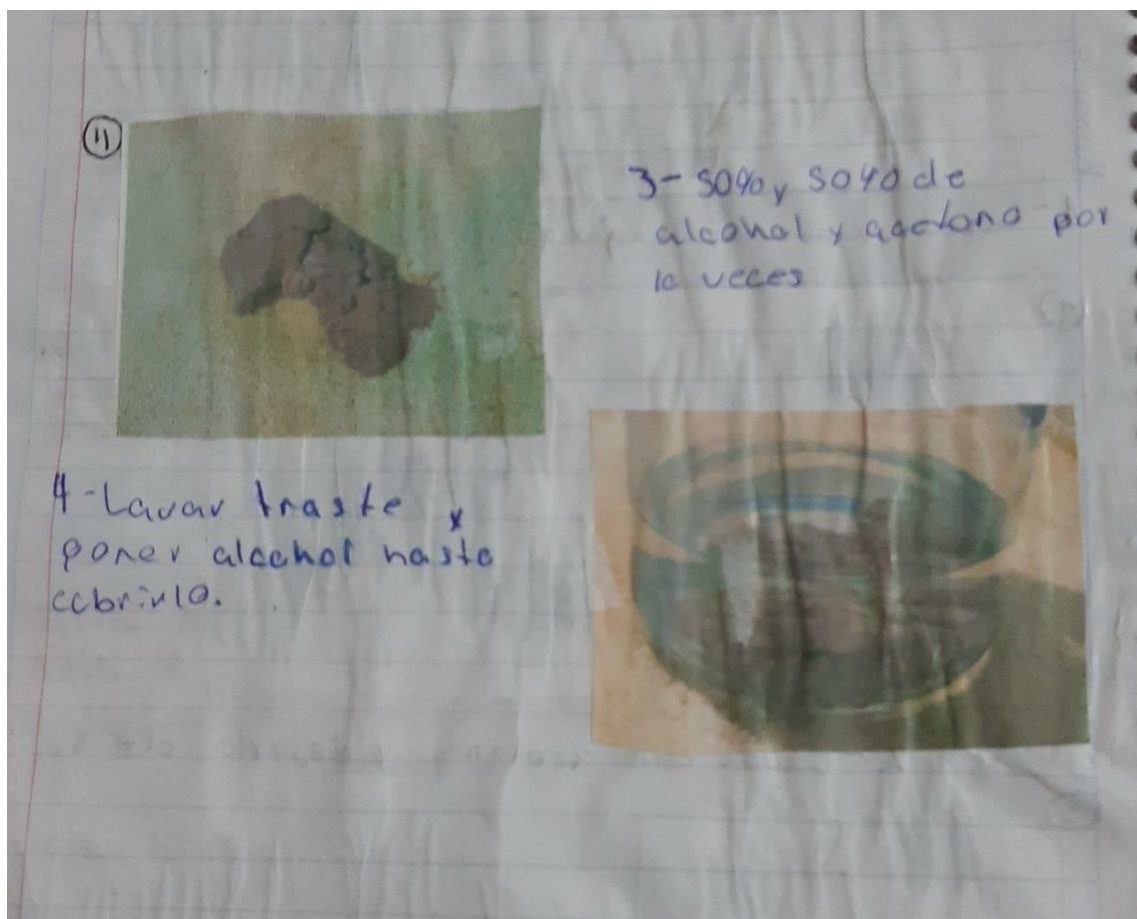 11
3- 50% y 50% de
alcohol y acetona por
10 veces
4- Lavar traste y
poner alcohol haste
cobrirlo.